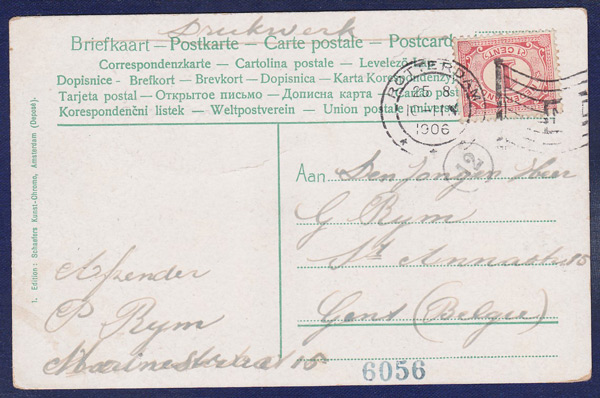 Drukwerk
Briefkaart — Postkarte — Carte postale — Postcard
Correspondenzkarte — Cartolina postale — Levelező
Dopisnice - Brefkort — Brevkort — Dopisnica — Karta Korespondenzy
Tarjeta postal — Открытое письмо — Дописна карта — postal
Korespondenční listek — Weltpostverein — Union postale univers
1 CENT
1
ROTTERDAM
25 8
1906
Aan Den Jongen Heer
G Rym
St Annastr 15
Gent (Belgie)
Afzender
P. Rym
Marinestraat 15
6056
1. Edition: Schaefers Kunst-Chromo, Amsterdam (Deposé).